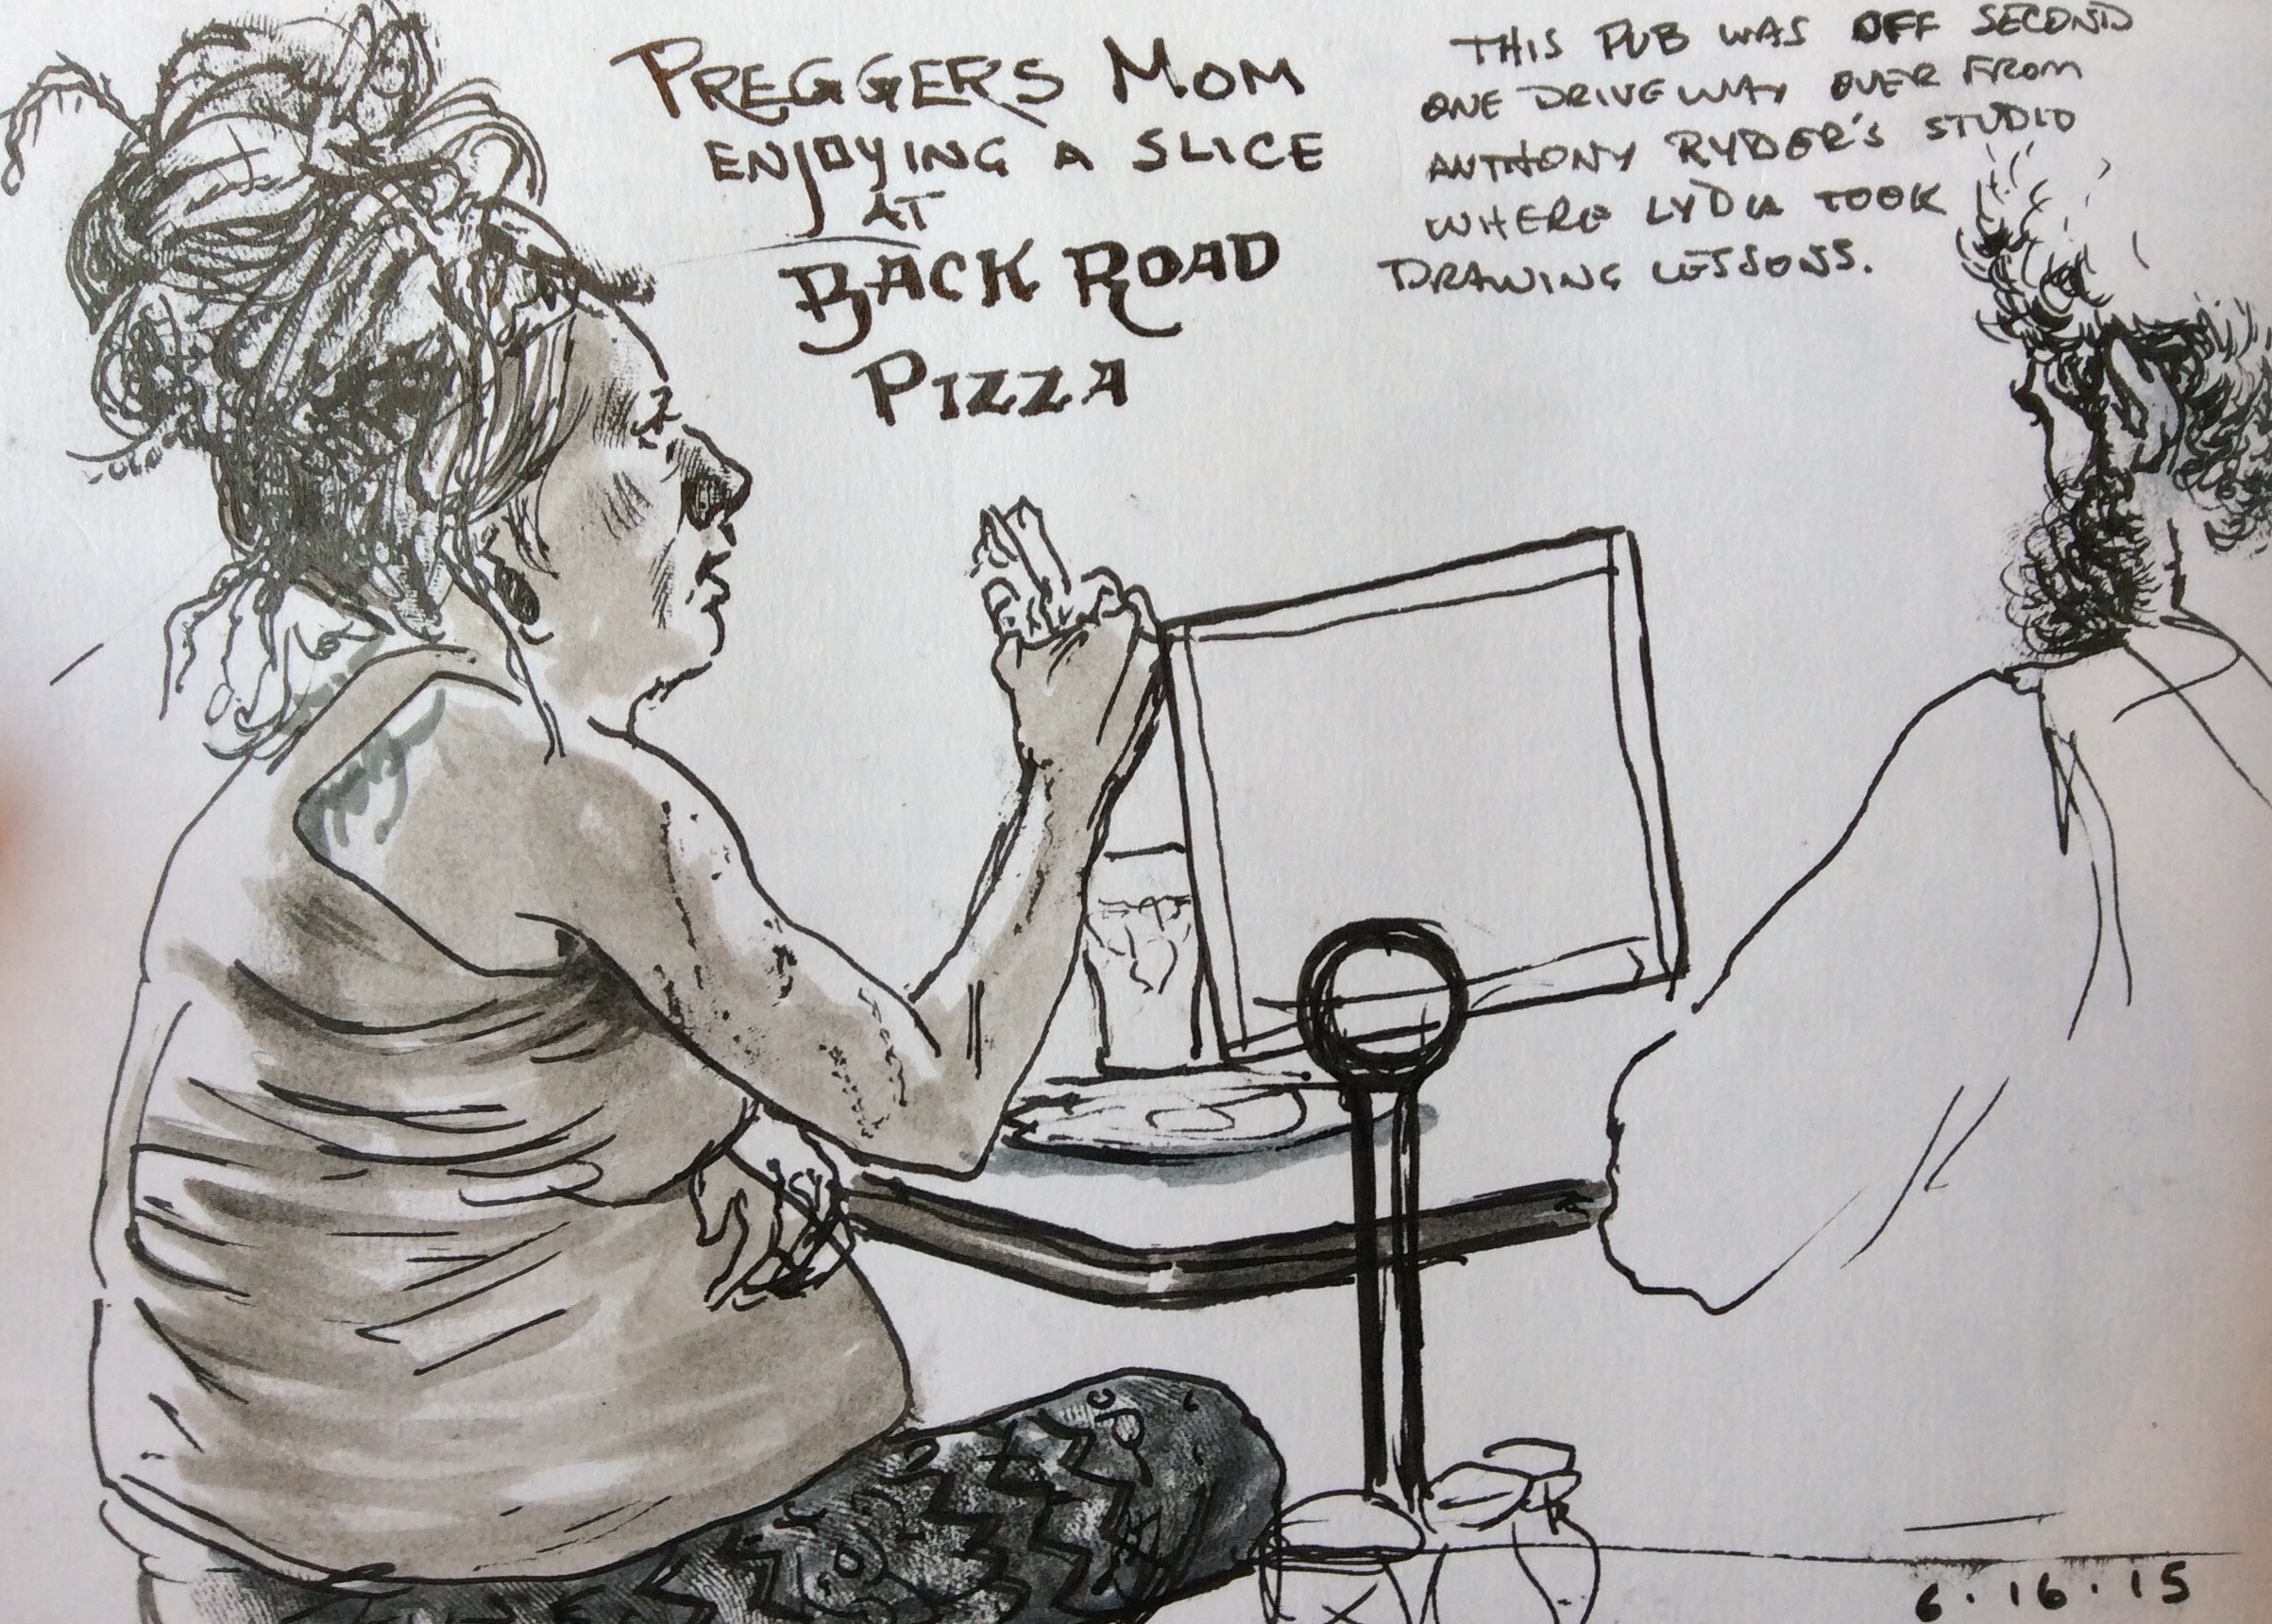 PREGGERS MOM
ENJOYING A SLICE
AT
BACK ROAD
PIZZA
THIS PUB WAS OFF SECOND
ONE DRIVEWAY OVER FROM
ANTHONY RYDER'S STUDIO
WHERE LYDIA TOOK
DRAWING LESSONS.
6.16.15